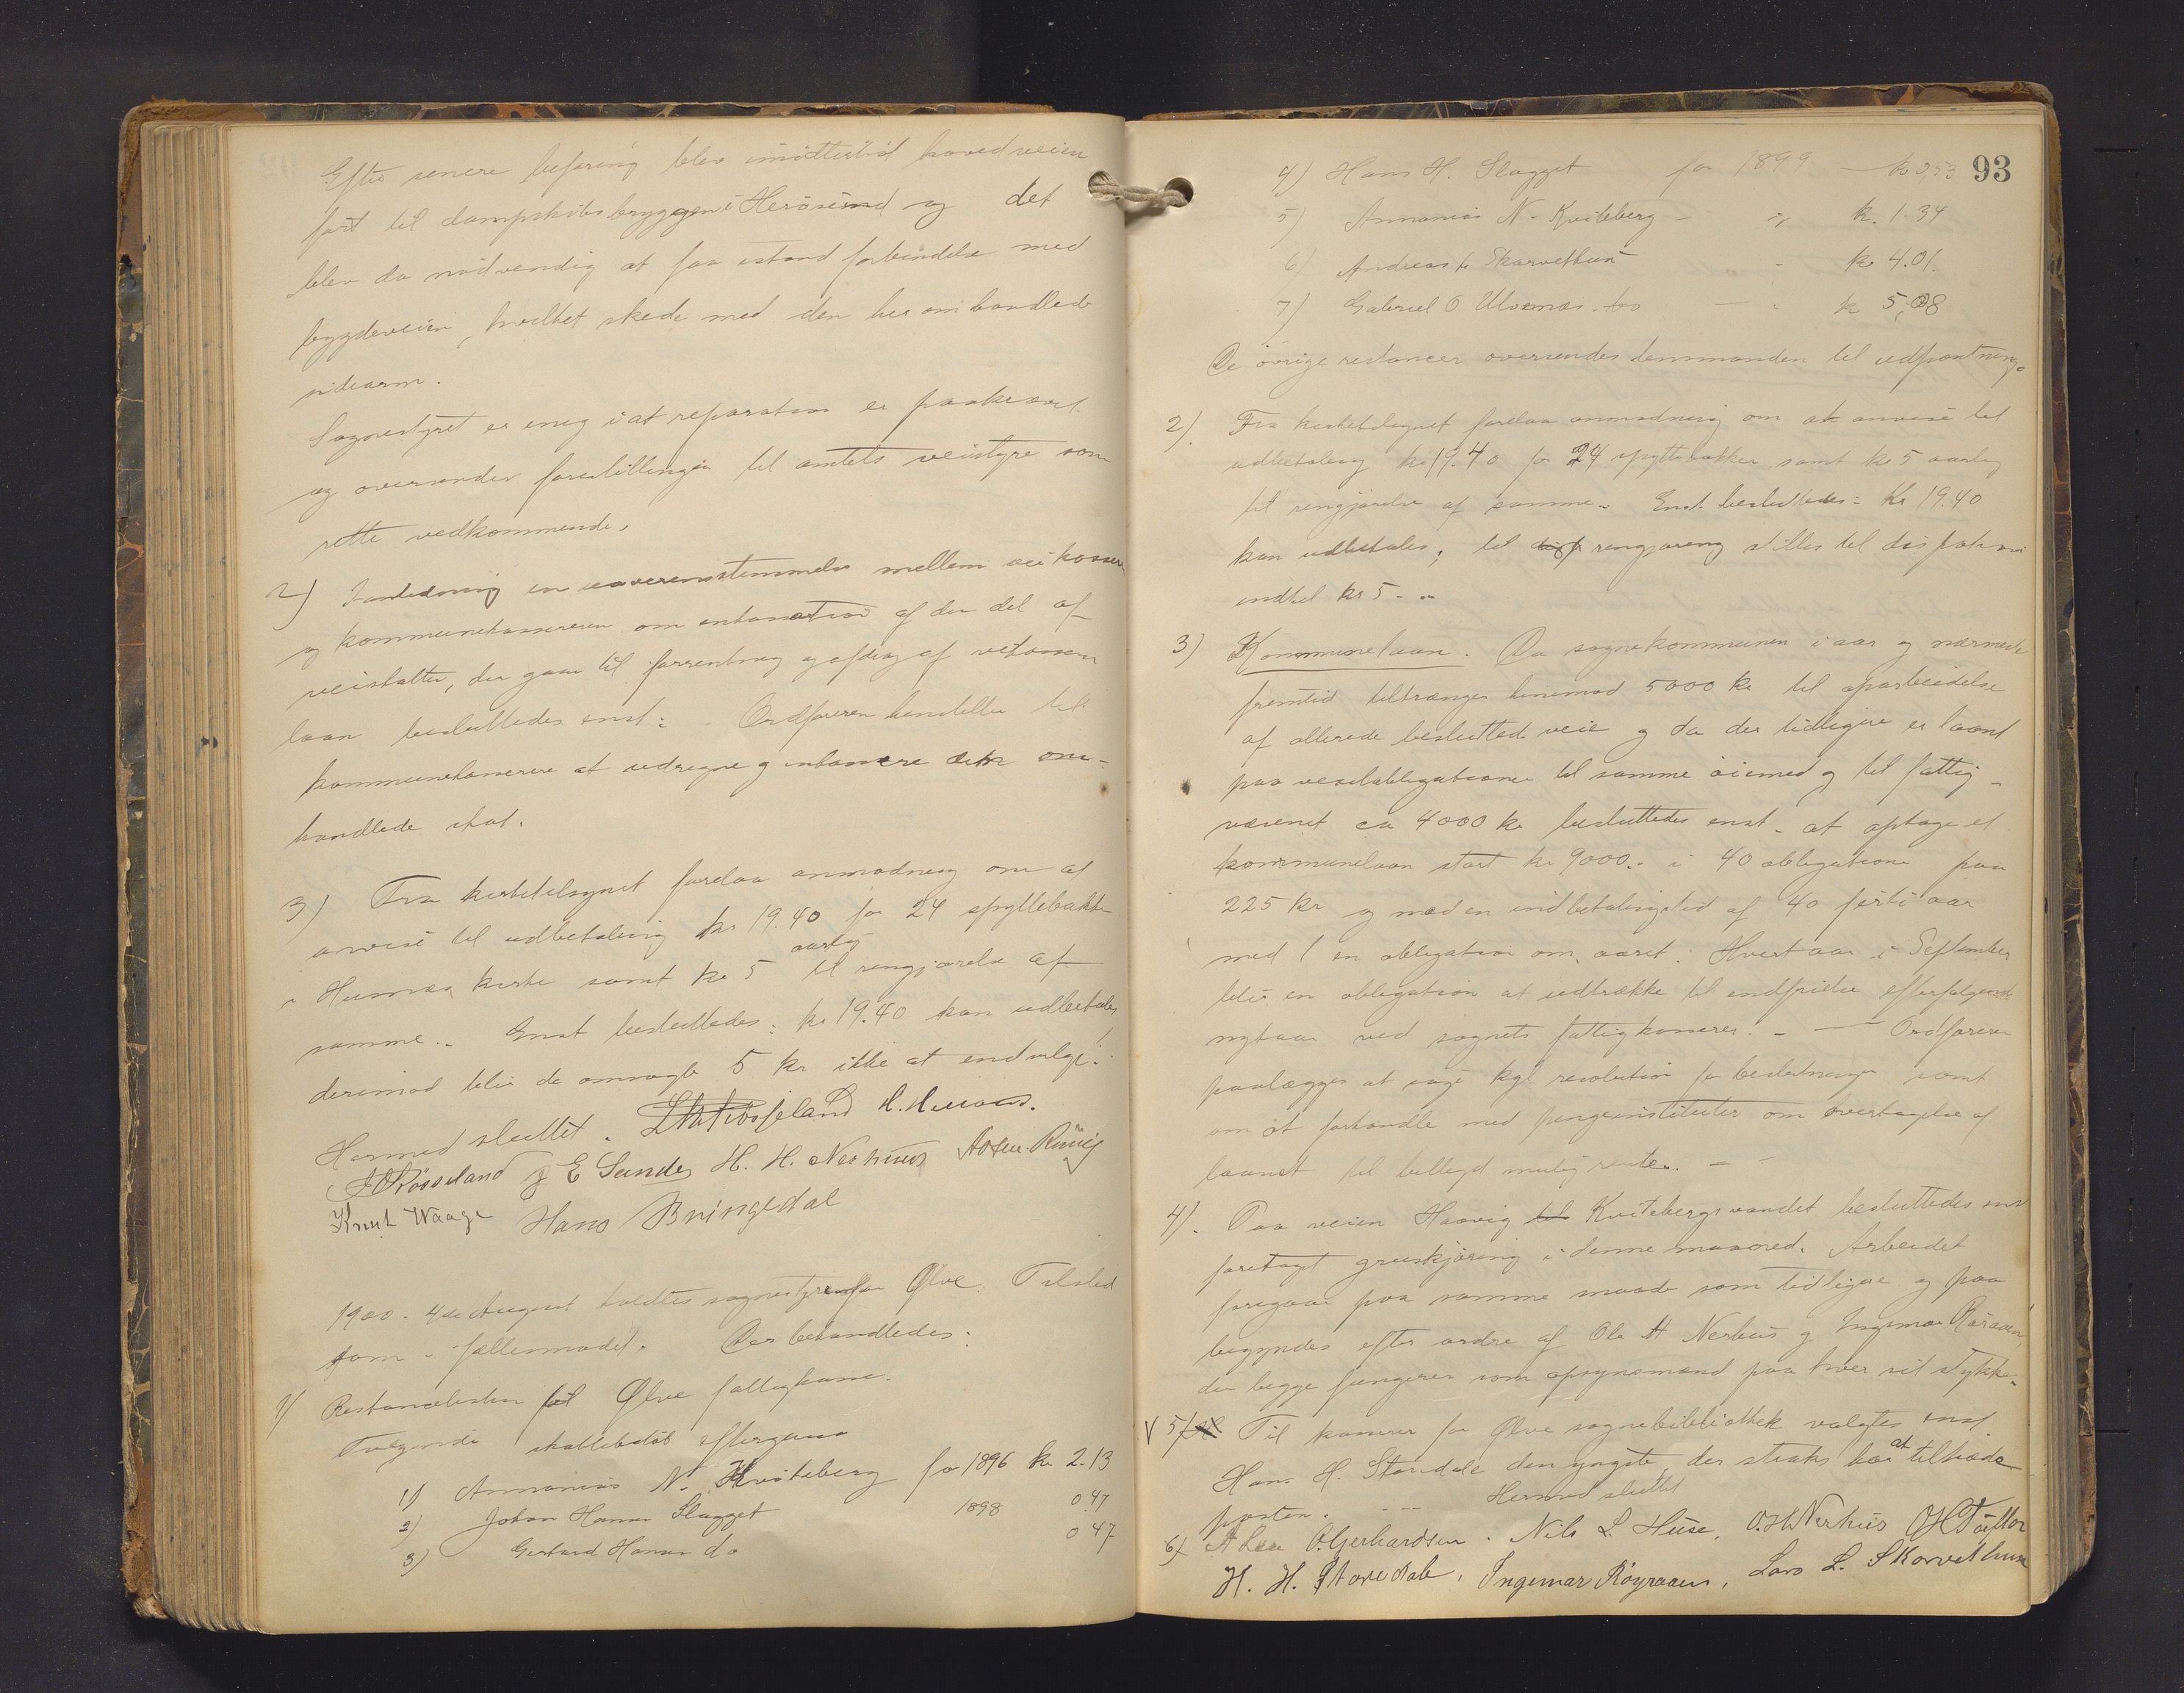 Efter senere befaring blev imidlertid hovedveien
ført til dampskibsbryggen i Herøsund og det
blev da nødvendig at faa istand forbindelse med
bygdeveien, hvilket skede med den her omhandlede
sidearm.
Sognestyret er enig i at reparation er paakrævet
og oversender forestillingen til amtets veistyre som
rette vedkommende.
2) I anledning en uoverensstemmelse mellem veikasser
og kommunekassereren om inkassation af den del af
veiskatten, der gaar til forrentning og afdrag af
laan besluttedes enst: Ordføreren henstiller til
kommunekasserer at udregne og inkassere den om-
handlede skat.
3) Fra kirketilsynet forelaa anmodning om at
anvise til udbetaling kr 19.40 for 24 spyttebakker
i kirke samt kr 5 aarlig til rengjørelse af
samme.. Enst besluttedes: kr 19.40 kan udbetales
derimod blir de omsøgte 5 kr ikke at indvilge.
Hermed sluttet. H.
Røsseland E Sunde H. H. Nerhuus
Knut Waage Hans Bringedal
1900. 4de August holdtes sognestyre for Ølve. Tilsted
som i fællesmødet. Der behandledes:
1) Restancelisten til Ølve fattigkasse.
Følgende skattebeløb eftergives
1) Annanias N. Kviteberg for 1896 kr 2.13
2) Johan Hansen Slagget 1898 0.47
3) Gerhard Hansen do 0 47
93
4) Hans H. Slagget for 1899 kr 0,53
5) Annanias N. Kviteberg - " k. 1.34
6) Andreas Skarvethun - kr 4.01.
7) Gabriel O Ulvenes - kr 5,08
De øvrige restancer oversendes lensmanden til udpantning.
2) Fra kirketilsynet forelaa anmodning om at anvise til
udbetaling kr 19.40 for 24 spyttebakker samt kr 5 aarlig
til rengjørelse af samme. Enst besluttedes: Kr 19.40
kan udbetales; til rengjøring stilles til disposition
indtil kr 5 - "
3) Kommunelaan. Da sognekommunen i aar og nærmeste
fremtid tiltrænger henimod 5000 kr til oparbeidelse
af allerede besluttede veie og da der tidligere er laant
paa vexelobligationer til samme øiemed og til fattig-
væsenet ca 4000 kr besluttedes enst. at optage et
kommunelaan stort kr 9000.- i 40 obligationer paa
225 kr og med en indbetalingstid af 40 førti aar
med 1 en obligation om aaret. Hvert aar i September
blir en obligation at udtrække til indfrielse efterfølgende
nytaar ved sognets fattigkasserer. - Ordføreren
paalægges at søge kgl resolution for beslutningen samt
om at forhandle med pengeinstituter om overtagelse af
laanet til billigst mulig rente. -
4). Paa veien Haavig til Kvitebergsvandet besluttedes enst
foretaget gruskjøring i denne maaned. Arbeidet
foregaar paa samme maade som tidligere og paa
begyndes efter ordre af Ole H Nerhus og Ingemar Røiraaen,
der begge fungerer som opsynsmænd paa hver sit stykke.
V 5/ Til kasserer for Ølve sognebibliothek valgtes enst.
Hans H. Storedale den yngste, der straks har at tiltræde
posten. - - - Hermed sluttet
6) A Gerhardsen. Nils L. Huse, O.H. Nerhus
H. H. Storedale, Ingemar Røyraaen, Lars L. Skorvethun